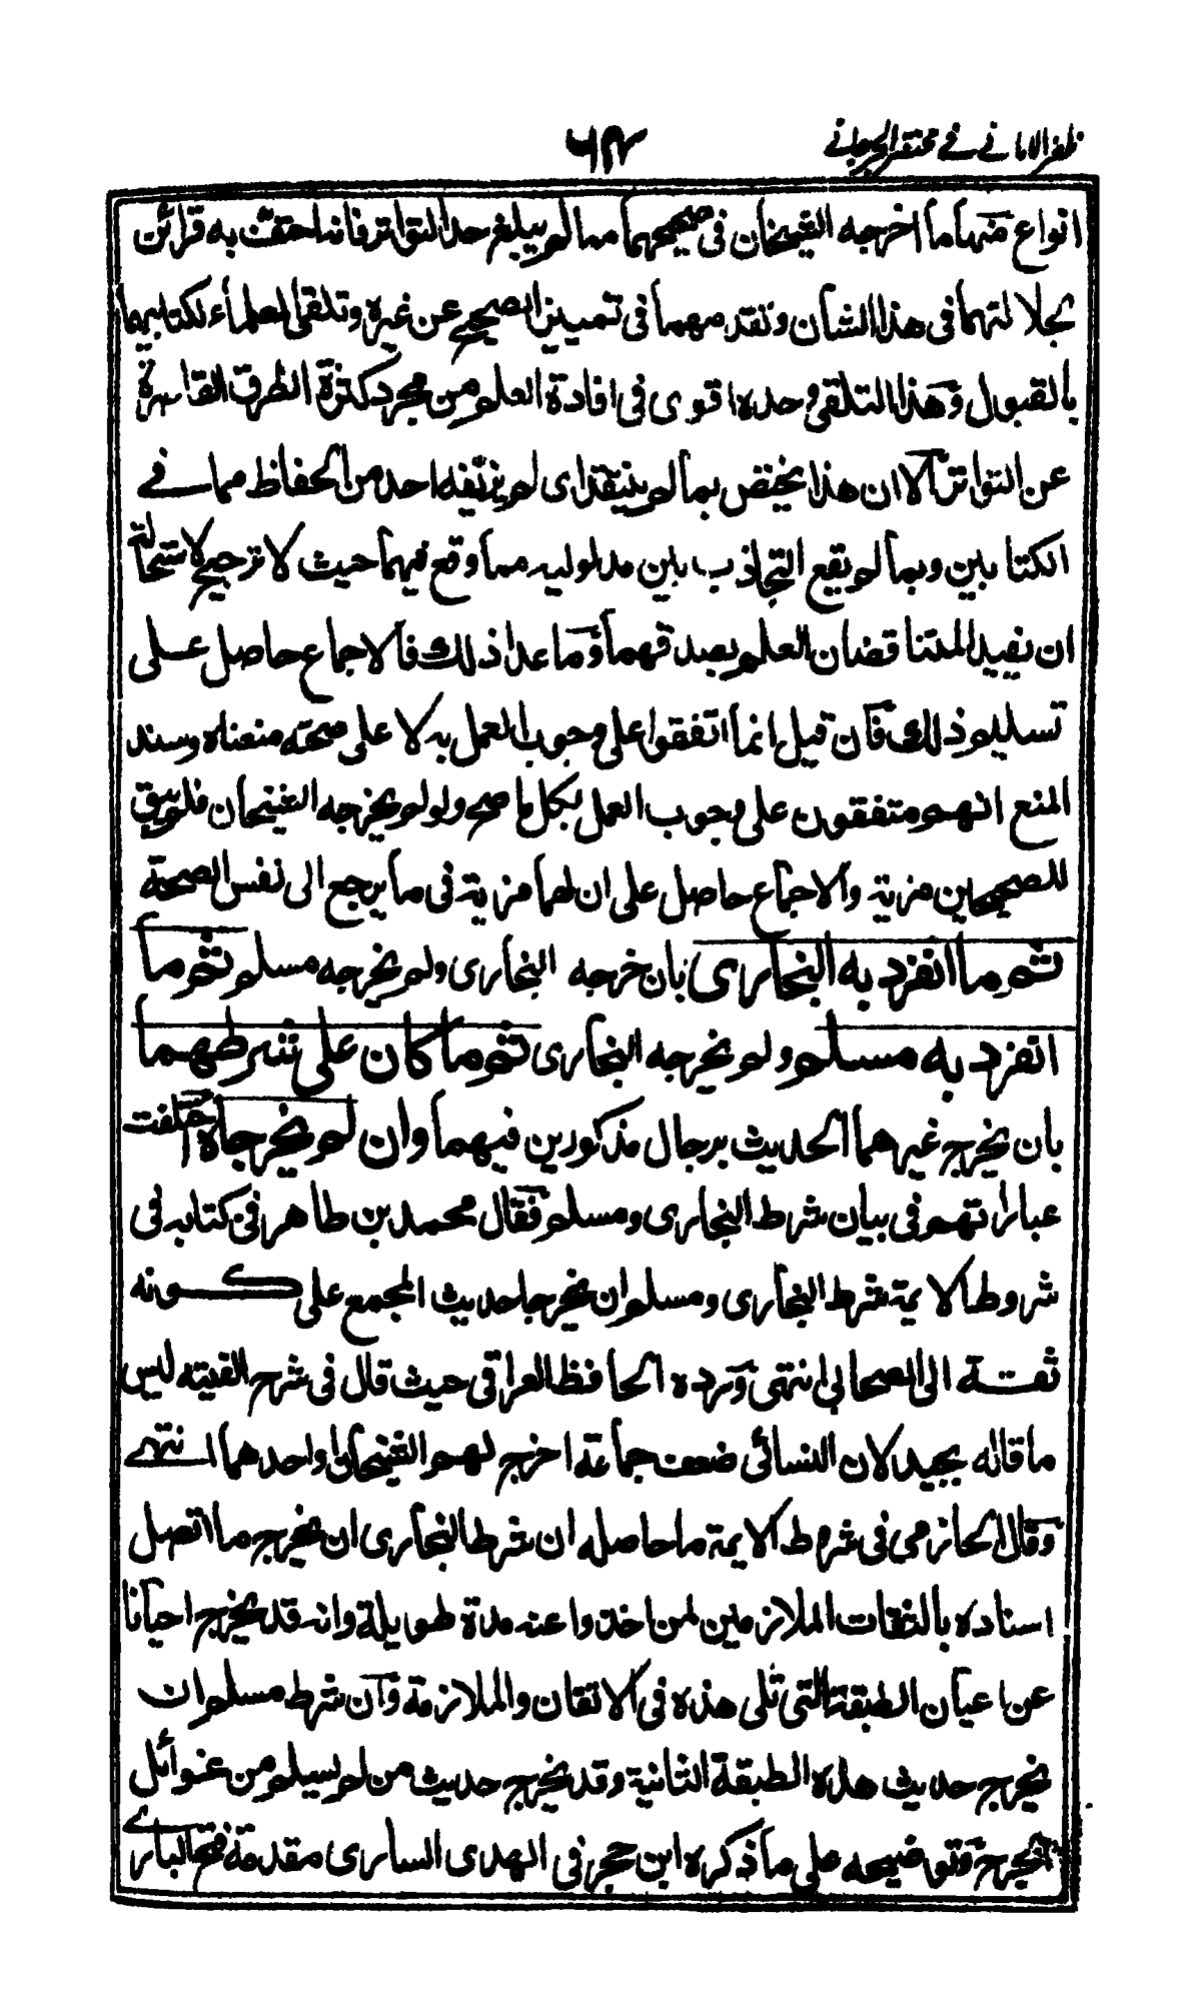 ظفر الامانے فے مختصر الجرجانے
٦٤
انواع منها ما اخرجه الشيخان فى صحيحهما مما لم يبلغ حد التواتر فانه احتفت به قرائن
بجلالتهما فى هذا الشأن وتقدمهما فى تمييز الصحيح عن غيره وتلقى العلماء لكتابيهما
بالقبول وهذا التلقى وحده اقوى فى افادة العلم من مجرد كثرة الطرق القاصرة
عن التواتر الا ان هذا يختص بما لم ينتقد اى لم يزيفه احد من الحفاظ مما فے
الكتابين وبما لم يقع التجاذب بين مدلوليه مما وقع فيهما حيث لا ترجيح لاستحالة
ان يفيد المتناقضان العلم بصدقهما وما عدا ذلك فالاجماع حاصل على
تسليم ذلك فان قيل انما اتفقوا على وجوب العمل به لا على صحته منعناه وسند
المنع انهم متفقون على وجوب العمل بكل ما صح ولو لم يخرجه الشيخان فلم يبق
للصحيحين مزية والاجماع حاصل على ان لهما مزية فى ما يرجع الى نفس الصحة
ثم ما انفرد به البخارى بان خرجه البخارى ولم يخرجه مسلم ثم ما
انفرد به مسلم ولم يخرجه البخارى ثم ما كان على شرطهما
بان يخرج غيرهما الحديث برجال مذكورين فيهما وان لم يخرجاه اختلفت
عباراتهم فى بيان شرط البخارى ومسلم فقال محمد بن طاهر فى كتابه فى
شروط الايمة شرط البخارى ومسلم ان يخرجا حديث المجمع على كونه
ثقة الى الصحابى انتهى ورده الحافظ العراقى حيث قال فى شرح الفيته ليس
ما قاله بجيد لان النسائى ضعف جماعة اخرج لهم الشيخان او احدهما انتهے
وقال الحازمى فى شروط الايمة ما حاصله ان شرط البخارى ان يخرج ما اتصل
اسناده بالثقات الملازمين لمن اخذوا عنه مدة طويلة وانه قد يخرج احيانا
عن اعيان الطبقة التى تلى هذه فى الاتقان والملازمة وان شرط مسلم ان
يخرج حديث هذه الطبقة الثانية وقد يخرج حديث من لم يسلم من غوائل
الجرح وتوضيحه على ما ذكره ابن حجر فى الهدى السارى مقدمة فتح البارے